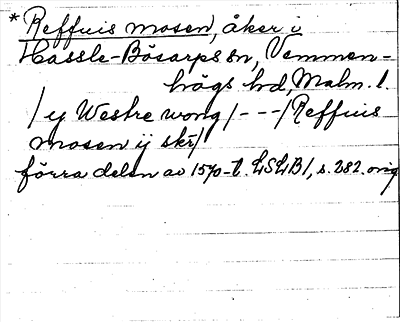 * Reffuis mosen, åker i
Hassle-Bösarps sn, Vemmen-
högs hd, Malm. l.
/ y Westre wong / - - - / Reffuis
mosen ij skr /
förra delen av 1570-t. LSLB 1, s. 282. orig